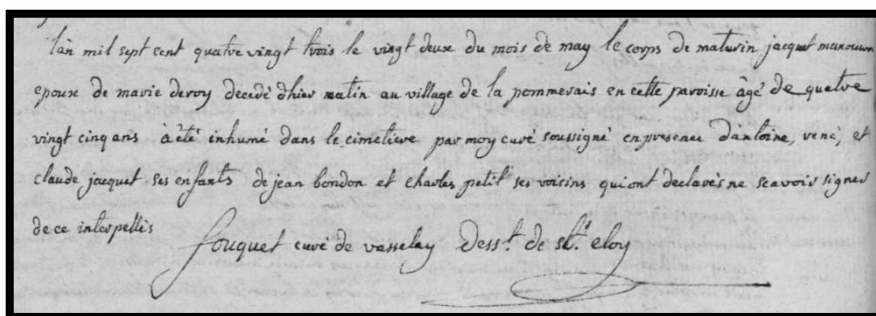 l'an mil sept cent quatre vingt trois le vingt deux du mois de may le corps de maturin jacquet manouvr
epoux de marie deroy decedé d'hier matin au village de la pommerais en cette paroisse âgé de quatre
vingt cinq ans à été inhumé dans le cimetiere par moy curé soussigné en presence d'antoine, rené, et
claude jacquet ses enfants de jean bondon et charles petit ses voisins qui ont declarés ne scavoir signer
de ce interpellés
fouquet curé de vasselay dess.t de st. eloy